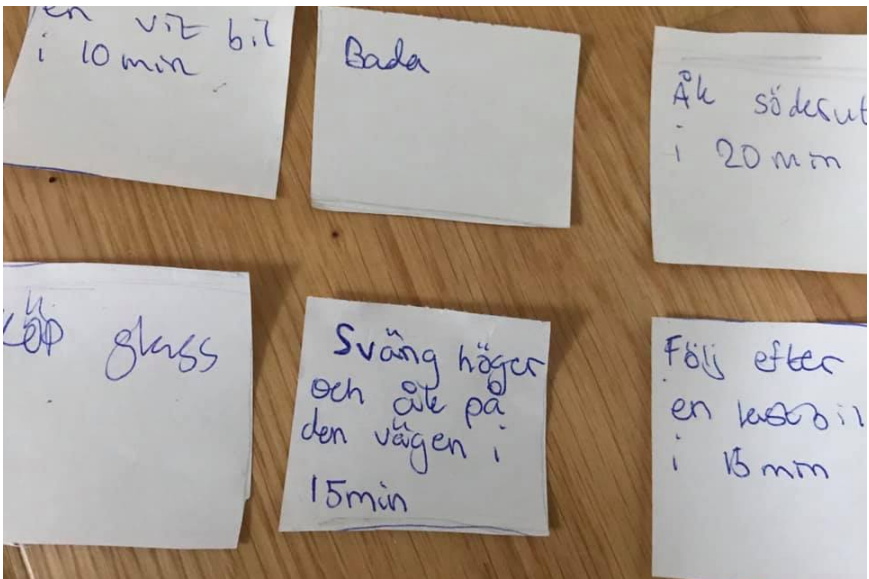 en vit bil
i 10 min
Bada
Åk söderut
i 20 min
Köp glass
Sväng höger
och åk på
den vägen i
15min
Följ efter
en lastbil
i 15 min